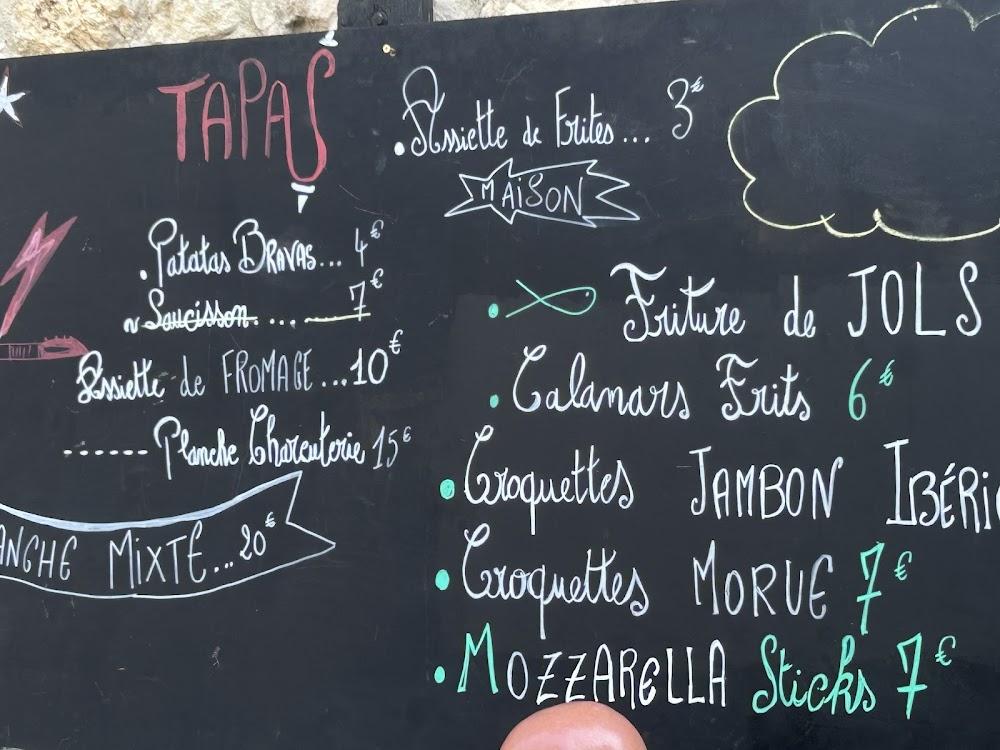 TAPAS
. Patatas BRAVAS... 4€
~ Saucisson..... 7€
Assiette de FROMAGE...10€
...... Planche Charcuterie 15€
ANCHE MIXTE...20€
. Assiette de Frites... 3€
MAISON
. Friture de JOLS
. Calamars Frits 6€
. Croquettes JAMBON IBÉRI
. Croquettes MORUE 7€
. MOZZARELLA Sticks 7€